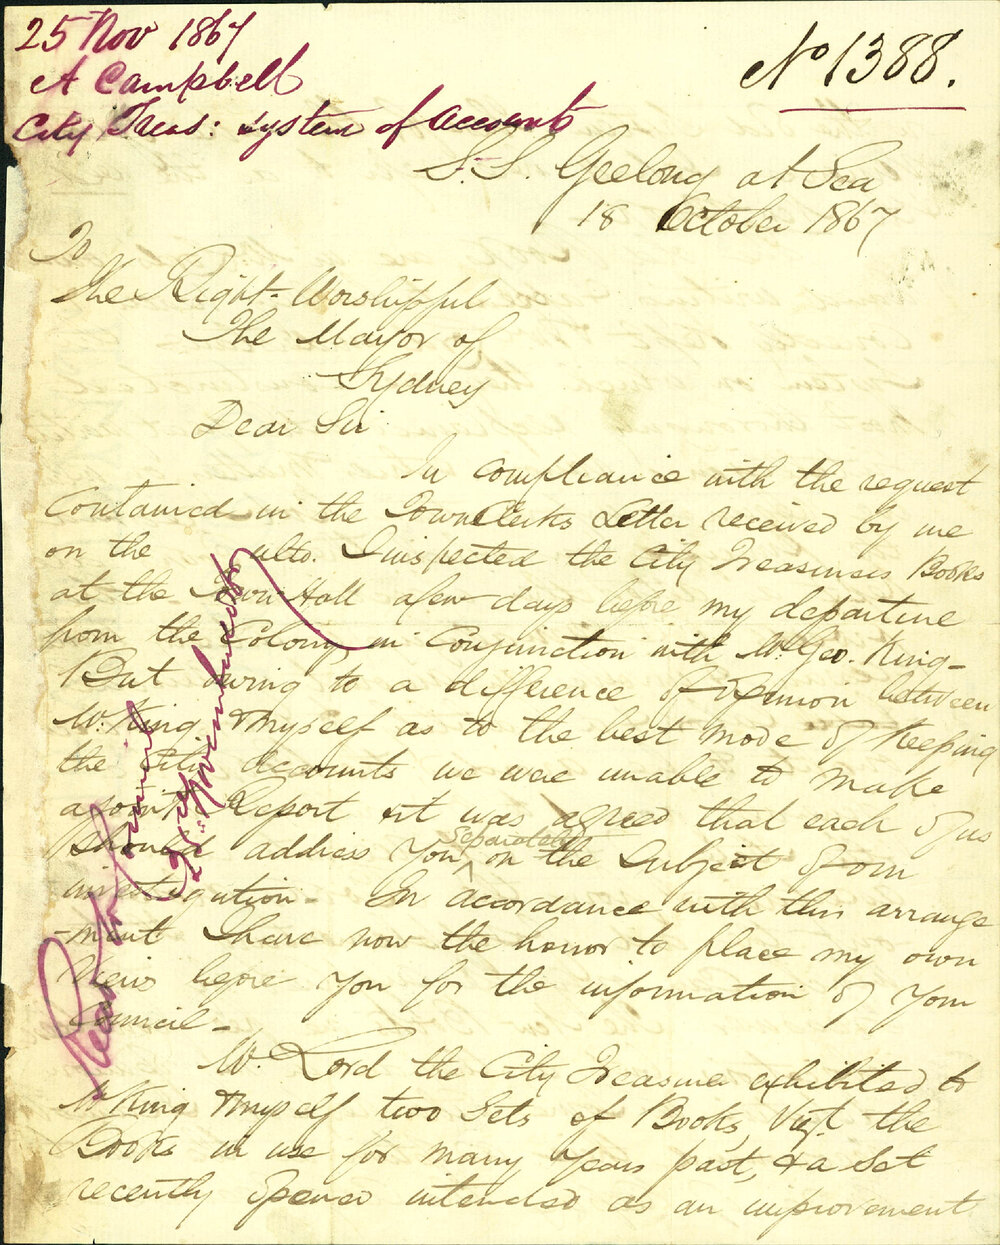 25 Nov 1867
A Campbell
City Treas: system of accounts
No 1388.
S.S. Geelong at Sea
18 October 1867
To
The Right Worshipful
The Mayor of
Sydney
Dear Sir
In compliance with the request
contained in the Town Clerks Letter received by me
on the ulto. I inspected the City Treasurers Books
at the Town Hall a few days before my departure
from the Colony, in conjunction with Mr Geo. King -
But owing to a difference of opinion between
Mr. King & myself as to the best mode of keeping
the City Accounts we were unable to make
a joint Report & it was agreed that each of us
should address you separately on the subject of our
investigation - In accordance with this arrange
-ment I have now the honor to place my own
views before you for the information of your
Council -
Mr. Lord the City Treasurer exhibited to
Mr King & myself two sets of Books, Vizt. the
Books in use for many years past, & a set
recently opened intended as an improvement
Read to Council
25th November